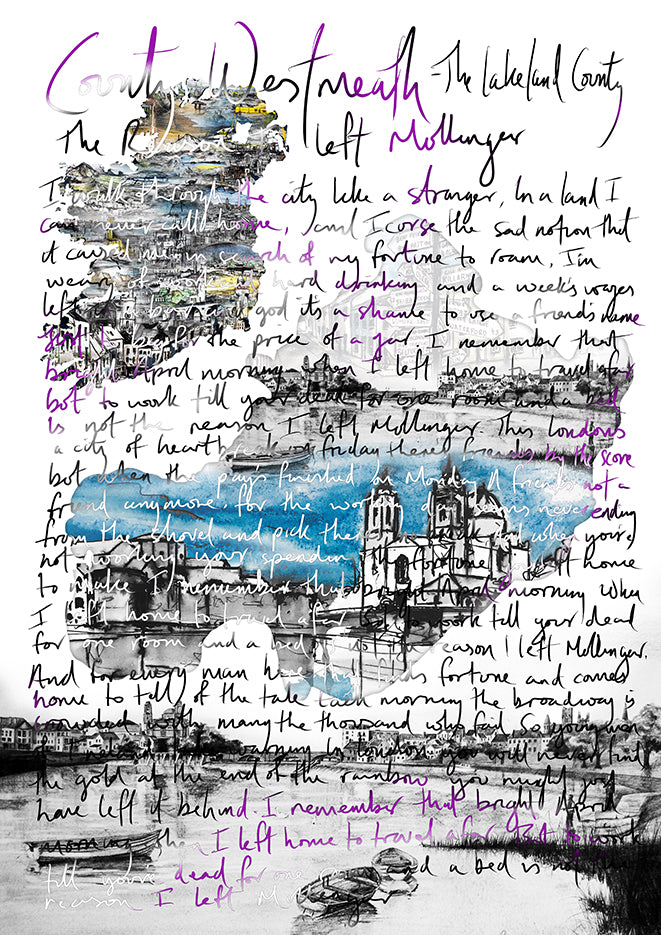 County Westmeath - The Lakeland County
The Reason I left Mollinger
I walk through the city like a stranger, In a land I
can never call home, and I corse the sad notion that
it caused me in search of my fortune to roam, I'm
weary of work hard drinking and a week's wages
left god it's a shame to use a friend's name
for the price of a jar. I remember that
bright April morning when I left home to travel afar
bot to work till your dead for one room and a bed
is not the reason I left Mollinger. This London's
a city of heartbreak on friday there's friends by the score
but when the pay's finished on Monday A friends not a
friend anymore, for the working day seems never ending
from the shovel and pick when your
not working your spending fortune left home
to make. I remember that bright April morning when
I left home to travel afar but to work till your dead
for one room and a bed is not the reason I left Mollinger.
And for every man here that finds fortune and comes
home to tell of the tale each morning the broadway is
crowded with many the thousand who fail. So young men
in London you will never find
the gold at the end of the rainbow you might just
have left it behind. I remember that bright April
morning when I left home to travel afar But to work
till your dead for one and a bed is not
reason I left Mollinger